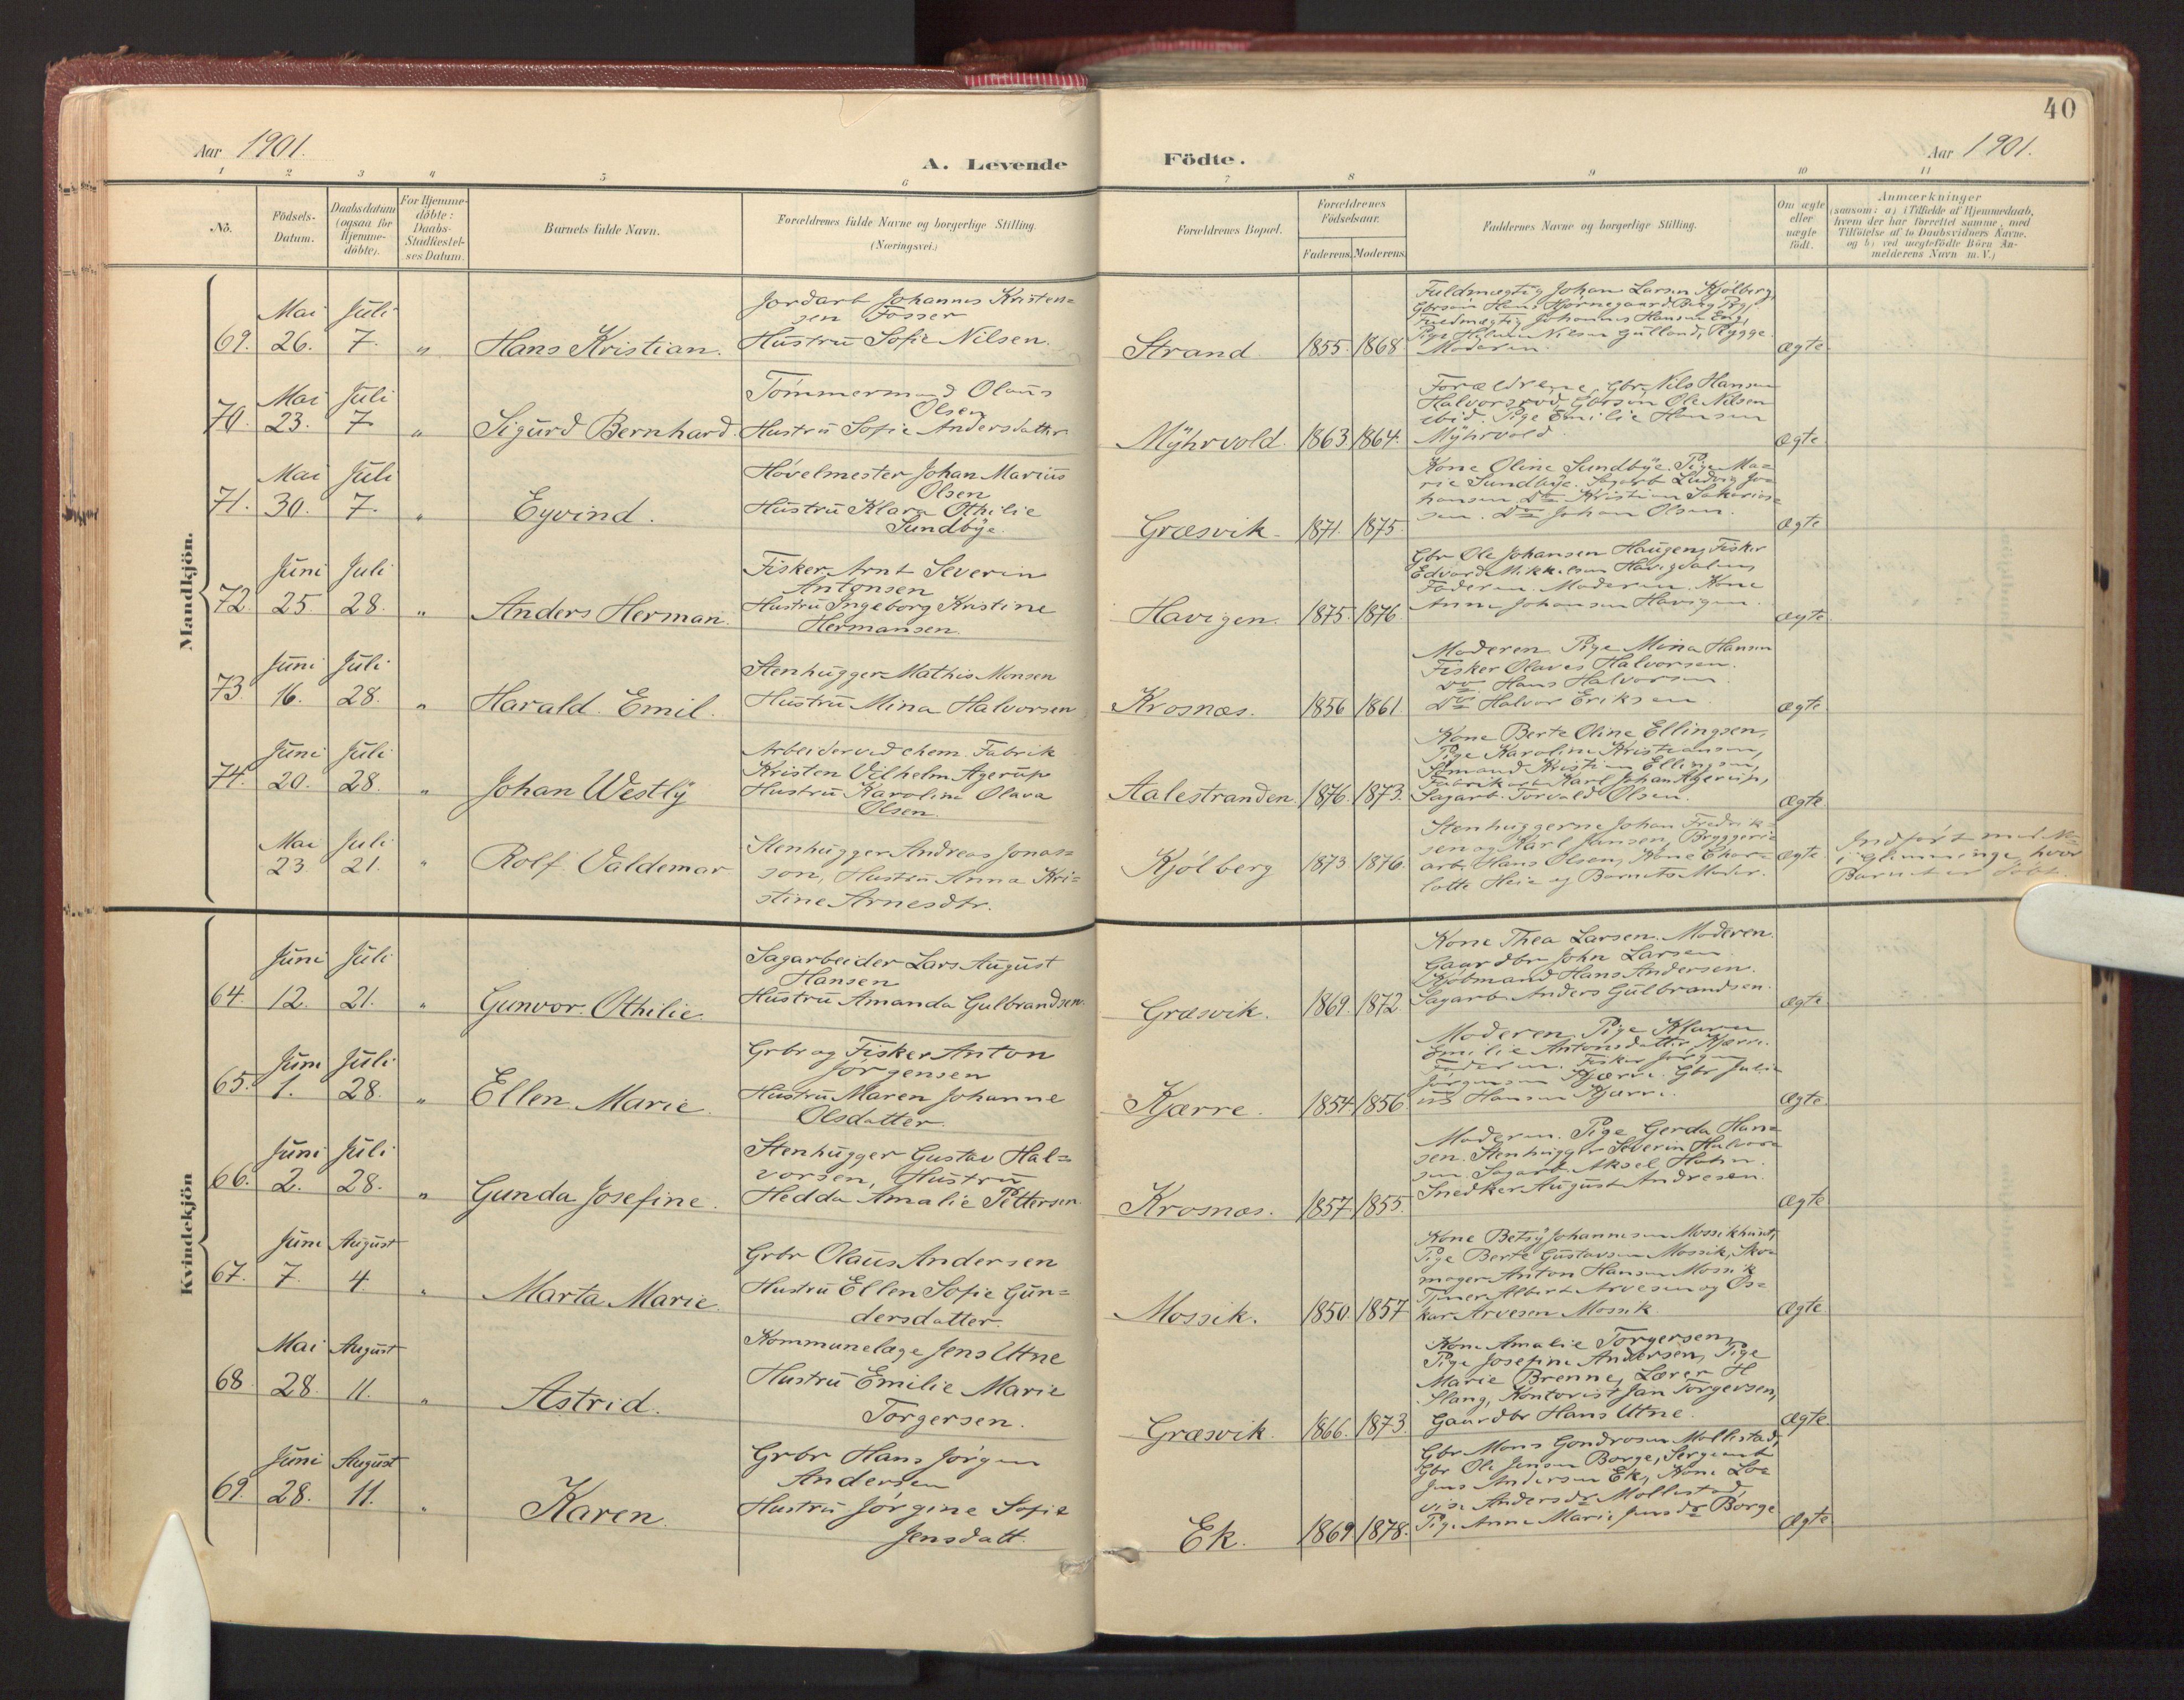 40
Aar 1901.
A. Levende Födte.
Aar 1901.
1 2 3 4 5 6 7 8 9 10 11
Nö.
Födsels-
Datum.
Daabsdatum
(ogsaa for
Hjemme-
döbte).
For Hjemme-
döbte:
Daabs-
Stadfæstel-
ses Datum.
Barnets fulde Navn.
Forældrenes fulde Navne og borgerlige Stilling
(Næringsvei.)
Forældrenes Bopæl.
Forældrenes
Födselsaar.
Faderens. Moderens.
Faddernes Navne og borgerlige Stilling.
Om ægte
eller
uægte
födt.
Anmærkninger
(saasom: a) i Tilfælde af Hjemmedaab,
hvem der har forrettet samme, med
Tilföielse af to Daabsvidners Navne,
og b) ved uægtefödte Börn An-
melderens Navn m. V.)
Mandkjön.
69. Mai 26. Juli 7. " Hans Kristian.
Jordarb Johannes Kristen=
sen Fosser
Hustru Sofie Nilsen.
Strand 1855. 1868
Fuldmægtig Johan Larsen Kjølberg,
Gbrsøn Hans Hjørnegaard Borg
Fuldmægtig Johannes Hansen Eng,
Pige Nilsen Gulland, Rygge
Moderen.
ægte.
70. Mai 23. Juli 7. " Sigurd Bernhard.
Tømmermand Olaus
Olsen
Hustru Sofie Andersdatter
Myhrvold. 1863 1864.
Forældrene, Gbr Nils Hansen
Halvorsrød, Gbrsøn Ole Nilsen
ibid. Pige Emilie Hansen
Myhrvold
ægte
71. Mai 30. Juli 7. " Eyvind.
Høvelmester Johan Marius
Olsen
Hustru Klara Othilie
Sundbye.
Græsvik. 1871. 1875.
Kone Oline Sundbye. Pige Ma=
rie Sundbye. Sagarb Ludvig Jo=
hansen. Do Kristian Sakarias=
sen. Do Johan Olsen.
ægte
72. Juni 25. Juli 28. " Anders Herman.
Fisker Arnt Severin
Antonsen
Hustru Ingeborg Kristine
Hermansen.
Havigen. 1875. 1876.
Gbr Ole Johansen Haugen, Fisker
Edvard Mikkelsen Havigdalen,
Faderen. Moderen. Kone
Anne Johansen Havigen.
ægte
73. Juni 16. Juli 28. " Harald Emil.
Stenhugger Mathis Monsen
Hustru Mina Halvorsen
Krosnæs. 1856 1861.
Moderen. Pige Mina Hansen
Fisker Olaves Halvorsen.
Do Hans Halvorsen.
Do Halvor Eriksen
ægte
74. Juni 20. Juli 28. " Johan Westly
Arbeider ved chem. Fabrik
Kristen Vilhelm Agerup
Hustru Karoline Olava
Olsen.
Aalestranden. 1876. 1873.
Kone Berte Oline Ellingsen,
Pige Karoline Kristiansen,
Sømand Kristian Ellingsen,
Fabrikarb Karl Johan Agerup,
Sagarb. Torvald Olsen.
ægte
Mai 23 Juli 21. " Rolf Valdemar
Stenhugger Andreas Jonas=
son, Hustru Anna Kri=
stine Arnesdtr.
Kjølberg 1873 1876.
Stenhuggerne Johan Fredrik=
sen og Karl Jansen, Bryggeri=
arb. Hans Olsen, Kone Char=
lotte Heie og Barnets Moder.
ægte.
Indført med No
i Glemminge, hvor
Barnet er døbt.
Kvindekjön
64. Juni 12. Juli 21. " Gunvor Othilie.
Sagarbeider Lars August
Hansen
Hustru Amanda Gulbrandsen.
Græsvik. 1869. 1872
Kone Thea Larsen. Moderen.
Gaardbr John Larsen.
Kjøbmand Hans Andersen.
Sagarb. Anders Gulbrandsen.
ægte
65. Juni 1. Juli 28. " Ellen Marie.
Grbr og Fisker Anton
Jørgensen
Hustru Maren Johanne
Olsdatter.
Kjærre. 1854. 1856
Moderen. Pige Klara
Emilie Antonsdatter Kjærre.
Faderen. Fisker Jørgen
Jørgensen Kjærre. Gbr Juli=
us Hansen Kjærre.
ægte.
66. Juni 2. Juli 28. " Gunda Josefine.
Stenhugger Gustav Hal=
vorsen, Hustru
Hedda Amalie Pettersen.
Krosnæs. 1857. 1855.
Moderen. Pige Gerda Han=
sen. Stenhugger Severin Halvor=
sen. Sagarb. Aksel Hahn.
Snedker August Andresen.
ægte
67. Juni 7. August 4. " Marta Marie.
Grbr Olaus Andersen
Hustru Ellen Sofie Gun=
dersdatter.
Mossik. 1850. 1857
Kone Betsy Johannesen Mossikhunt,
Pige Berte Gustavsen Mossik, Sko=
mager Anton Hansen Mossik
Tjener Albert Arvesen og Os=
kar Arvesen Mossik.
ægte
68. Mai 28. August 11. " Astrid.
Kommunelæge Jens Utne
Hustru Emilie Marie
Torgersen.
Græsvik 1866. 1873.
Kone Amalie Torgersen,
Pige Josefine Andersen, Pige
Marie Brenne, Lærer H
Slang, Kontorist Jan Torgersen,
Gaardbr Hans Utne.
ægte.
69. Juni 28. August 11. " Karen.
Grbr Hans Jørgen
Andersen
Hustru Jørgine Sofie
Jensdatt.
Ek. 1869 1878.
Gbr Mons Gundrosen Mollestad,
Gbr Ole Jensen Borge, Sergeant
Jens Andersen Ek, Kone Lo=
vise Andersdr Mollestad,
Pige Anne Marie Jensdr Borge
ægte